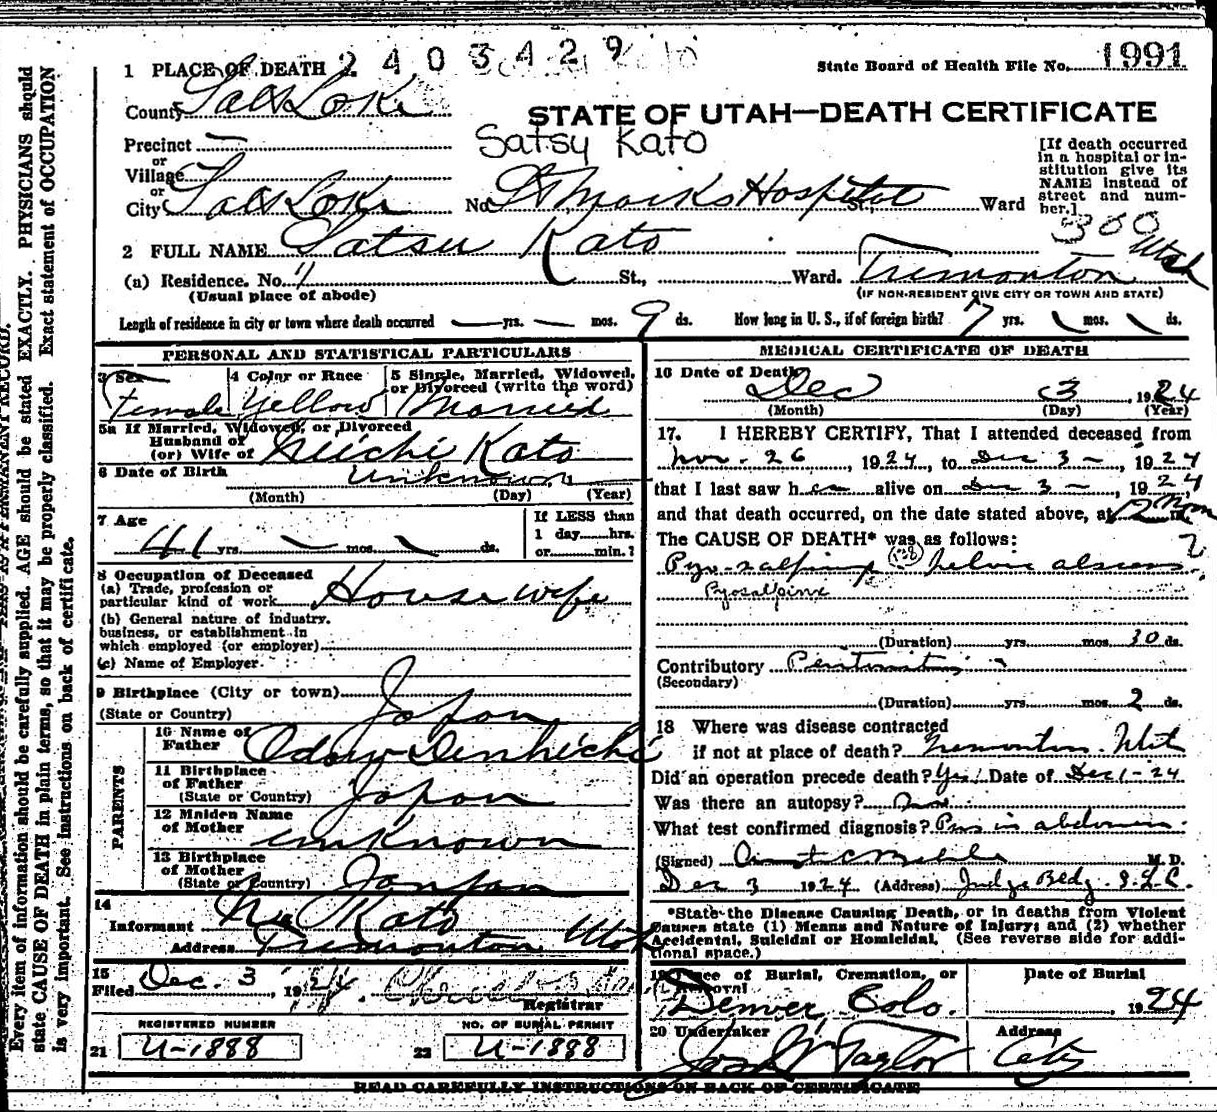 1 PLACE OF DEATH 2403429
State Board of Health File No. 1991
County Salt Lake
STATE OF UTAH—DEATH CERTIFICATE
Satsy Kato
Precinct
or
Village
or
City Salt Lake No. St Marks Hospital St., Ward
[If death occurred
in a hospital or in-
stitution give its
NAME instead of
street and num-
ber.]
300
2 FULL NAME Satsu Kato
(a) Residence. No. St., Ward. Tremonton Utah
(Usual place of abode)
(IF NON-RESIDENT GIVE CITY OR TOWN AND STATE)
Length of residence in city or town where death occurred — yrs. — mos. 9 ds. How long in U. S., if of foreign birth? 7 yrs. mos. ds.
PERSONAL AND STATISTICAL PARTICULARS
3 Sex 4 Color or Race 5 Single, Married, Widowed,
or Divorced (write the word)
Female Yellow Married
5a If Married, Widowed, or Divorced
Husband of
(or) Wife of Neiichi Kato
6 Date of Birth Unknown
(Month) (Day) (Year)
7 Age
41 yrs. — mos. ds.
If LESS than
1 day hrs.
or min.?
8 Occupation of Deceased
(a) Trade, profession or
particular kind of work Housewife
(b) General nature of industry.
business, or establishment in
which employed (or employer)
(c) Name of Employer
9 Birthplace (City or town)
(State or Country) Japan
PARENTS
10 Name of
Father Odow Denhichi
11 Birthplace
of Father
(State or Country) Japan
12 Maiden Name
of Mother unknown
13 Birthplace
of Mother
(State or Country) Japan
14
Informant Kato
Address Tremonton Utah
15
Filed Dec. 3, 1924
Registrar
REGISTERED NUMBER NO. OF BURIAL PERMIT
21 U-1888 22 U-1888
MEDICAL CERTIFICATE OF DEATH
16 Date of Death
Dec 3, 1924
(Month) (Day) (Year)
17. I HEREBY CERTIFY, That I attended deceased from
Nov. 26, 1924, to Dec 3 –, 1924
that I last saw her alive on Dec 3 –, 1924,
and that death occurred, on the date stated above, at 12 Noon m.
The CAUSE OF DEATH* was as follows:
Pyo-salpinx (138) pelvic abscess
Pyosalpinx
(Duration) yrs. mos. 10 ds.
Contributory Peritonitis
(Secondary)
(Duration) yrs. mos. 2 ds.
18 Where was disease contracted
if not at place of death? Tremonton Utah
Did an operation precede death? Yes Date of Dec 1-24
Was there an autopsy?
What test confirmed diagnosis? Pus in abdomen.
(Signed) M. D.
Dec 3 1924 (Address) Judge Bldg. S.L.C.
*State the Disease Causing Death, or in deaths from Violent
Causes state (1) Means and Nature of Injury; and (2) whether
Accidental, Suicidal or Homicidal. (See reverse side for addi-
tional space.)
19 Place of Burial, Cremation, or
Removal Date of Burial
Denver, Colo. 1924
20 Undertaker Address
Jos. Wm Taylor City
READ CAREFULLY INSTRUCTIONS ON BACK OF CERTIFICATE
Every item of information should be carefully supplied. AGE should be stated EXACTLY. PHYSICIANS should
state CAUSE OF DEATH in plain terms, so that it may be properly classified. Exact statement of OCCUPATION
is very important. See instructions on back of certificate.